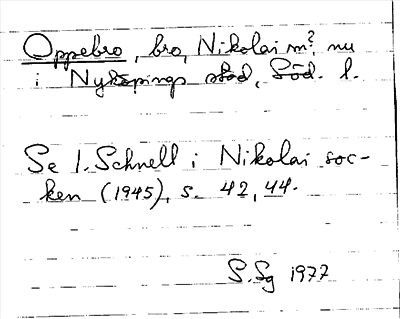 Oppebro, bro, Nikolai m? nu
i Nyköpings stad, Söd. l.
Se I. Schnell i Nikolai soc-
ken (1945), s. 42, 44.
S. Sg 1977